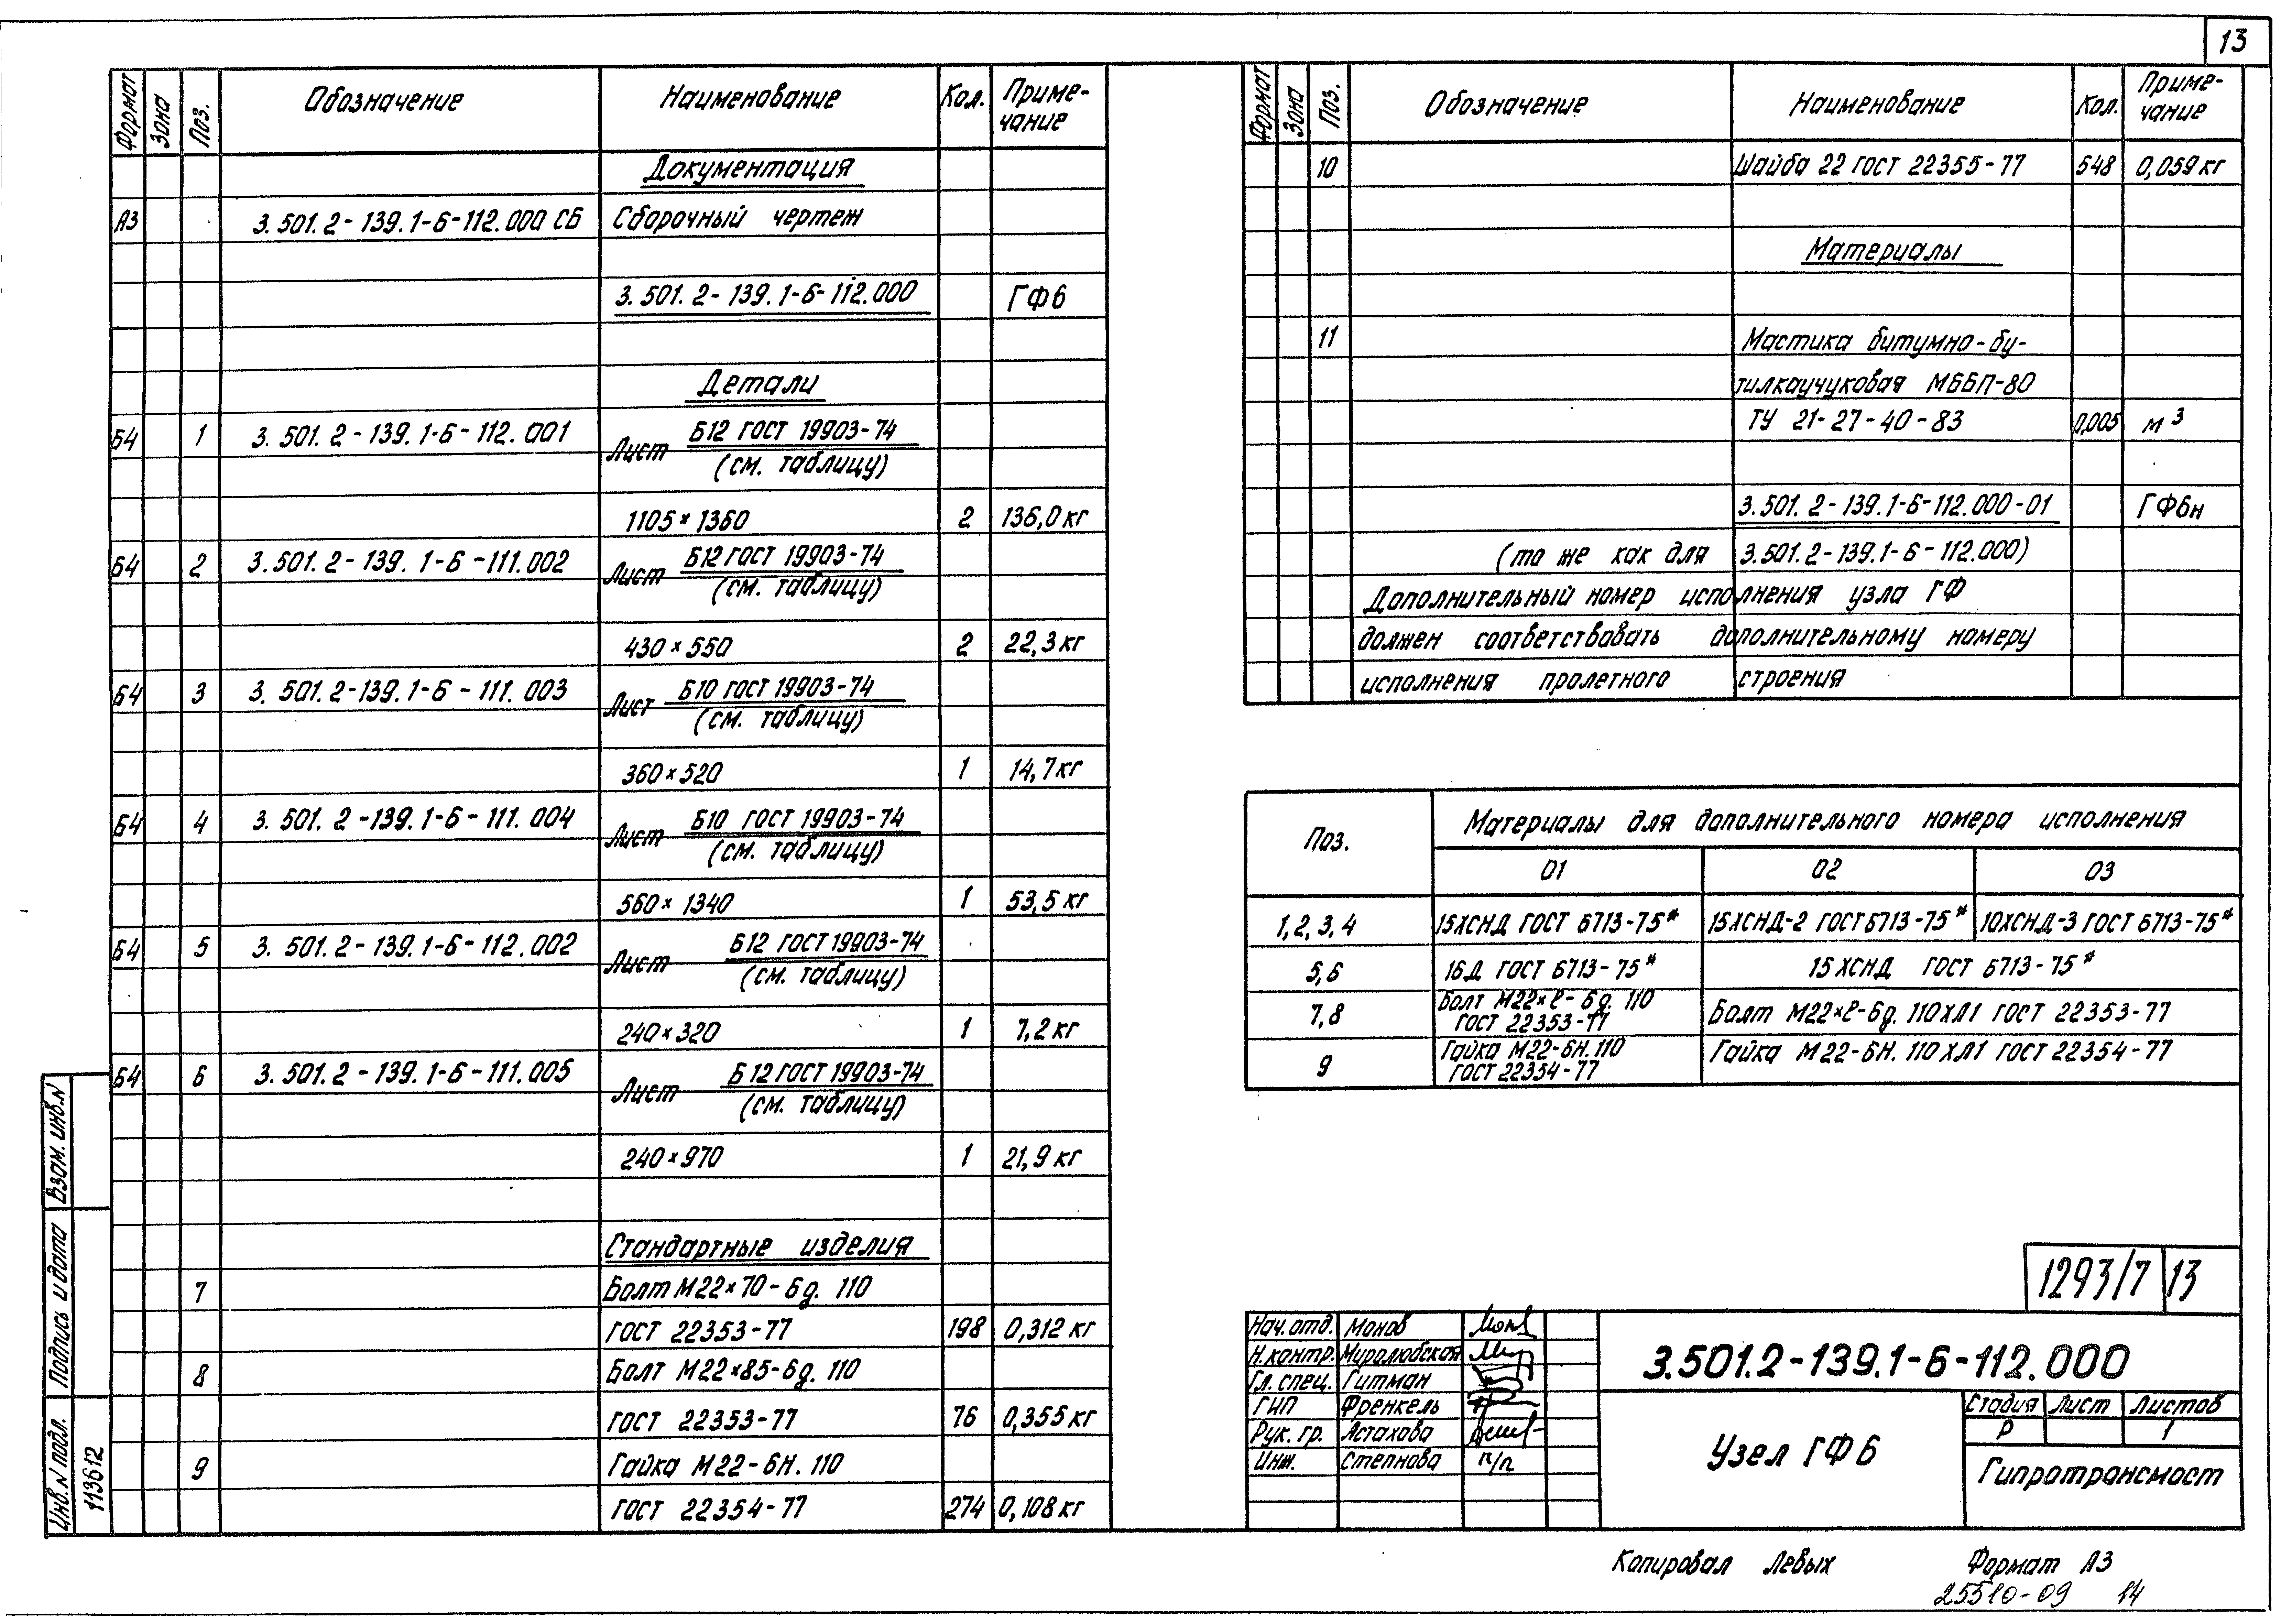 13
Формат Зона Поз. Обозначение Наименование Кол. Приме-
чание
Документация
А3 3.501.2-139.1-6-112.000 СБ Сборочный чертеж
3.501.2-139.1-6-112.000 ГФ6
Детали
Б4 1 3.501.2-139.1-6-112.001 Лист Б12 ГОСТ 19903-74
(см. таблицу)
1105×1360 2 136,0 кг
Б4 2 3.501.2-139.1-6-111.002 Лист Б12 ГОСТ 19903-74
(см. таблицу)
430×550 2 22,3 кг
Б4 3 3.501.2-139.1-6-111.003 Лист Б10 ГОСТ 19903-74
(см. таблицу)
360×520 1 14,7 кг
Б4 4 3.501.2-139.1-6-111.004 Лист Б10 ГОСТ 19903-74
(см. таблицу)
560×1340 1 53,5 кг
Б4 5 3.501.2-139.1-6-112.002 Лист Б12 ГОСТ 19903-74
(см. таблицу)
240×320 1 7,2 кг
Б4 6 3.501.2-139.1-6-111.005 Лист Б12 ГОСТ 19903-74
(см. таблицу)
240×970 1 21,9 кг
Стандартные изделия
7 Болт М22×70-6g. 110
ГОСТ 22353-77 198 0,312 кг
8 Болт М22×85-6g. 110
ГОСТ 22353-77 76 0,355 кг
9 Гайка М22-6Н. 110
ГОСТ 22354-77 274 0,108 кг
Взам. инв. N
Подпись и дата
Инв. N подл. 113612
Формат Зона Поз. Обозначение Наименование Кол. Приме-
чание
10 Шайба 22 ГОСТ 22355-77 548 0,059 кг
Материалы
11 Мастика битумно-бу-
тилкаучуковая МББП-80
ТУ 21-27-40-83 0,005 м³
3.501.2-139.1-6-112.000-01 ГФ6н
(то же как для 3.501.2-139.1-6-112.000)
Дополнительный номер исполнения узла ГФ
должен соответствовать дополнительному номеру
исполнения пролетного строения
Поз. Материалы для дополнительного номера исполнения
01 02 03
1,2,3,4 15ХСНД ГОСТ 6713-75* 15ХСНД-2 ГОСТ 6713-75* 10ХСНД-3 ГОСТ 6713-75*
5,6 16Д ГОСТ 6713-75* 15ХСНД ГОСТ 6713-75*
7,8 Болт М22×ℓ-6g. 110
ГОСТ 22353-77 Болт М22×ℓ-6g. 110ХЛ1 ГОСТ 22353-77
9 Гайка М22-6Н. 110
ГОСТ 22354-77 Гайка М22-6Н. 110ХЛ1 ГОСТ 22354-77
1293/7 13
Нач. отд. Монов
Н. контр. Муралюбская
Гл. спец. Гитман
ГИП Френкель
Рук. гр. Астахова
Инж. Степнова п/п
3.501.2-139.1-6-112.000
Узел ГФ6
Стадия Лист Листов
Р 1
Гипротрансмост
Копировал Левых Формат А3
25510-09 14